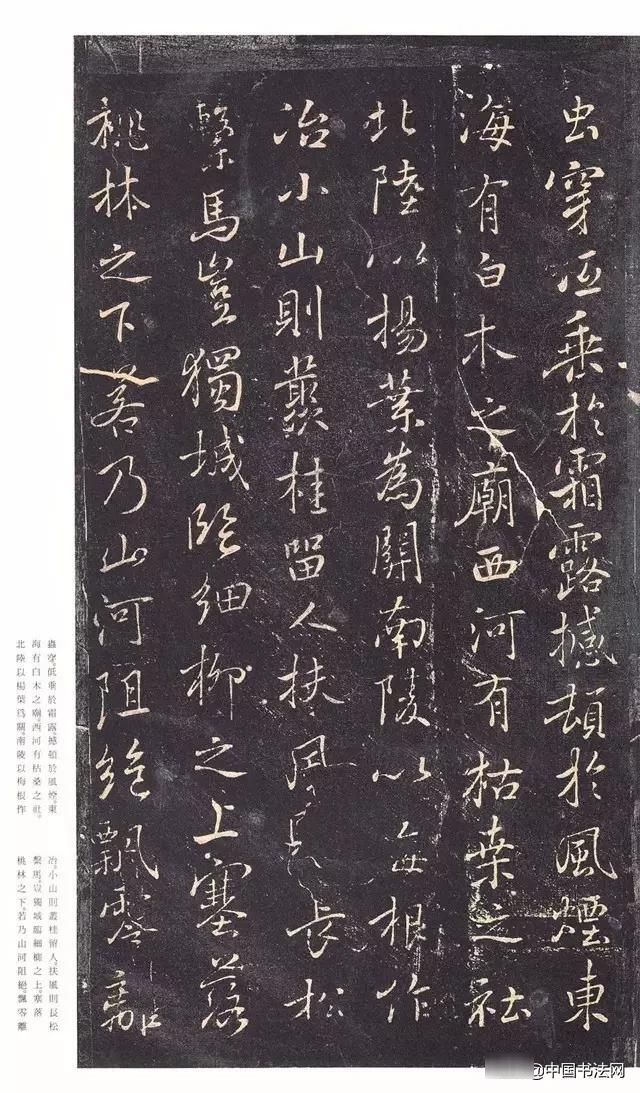 虫穿仾垂於霜露撼頓於風煙東
海有白木之廟西河有枯桑之社
北陸以揚葉為關南陵以每根作
冶小山則叢桂留人扶風則長松
繫馬豈獨城臨細柳之上塞落
桃林之下若乃山河阻絕飄零離
蟲穿。低垂於霜露。撼頓於風煙。東
海有白木之廟。西河有枯桑之社。
北陸以楊葉爲關。南陵以梅根作
冶。小山則叢桂留人。扶風則長松
繫馬。豈獨城臨細柳之上。塞落
桃林之下。若乃山河阻絕。飄零離
@中国书法网